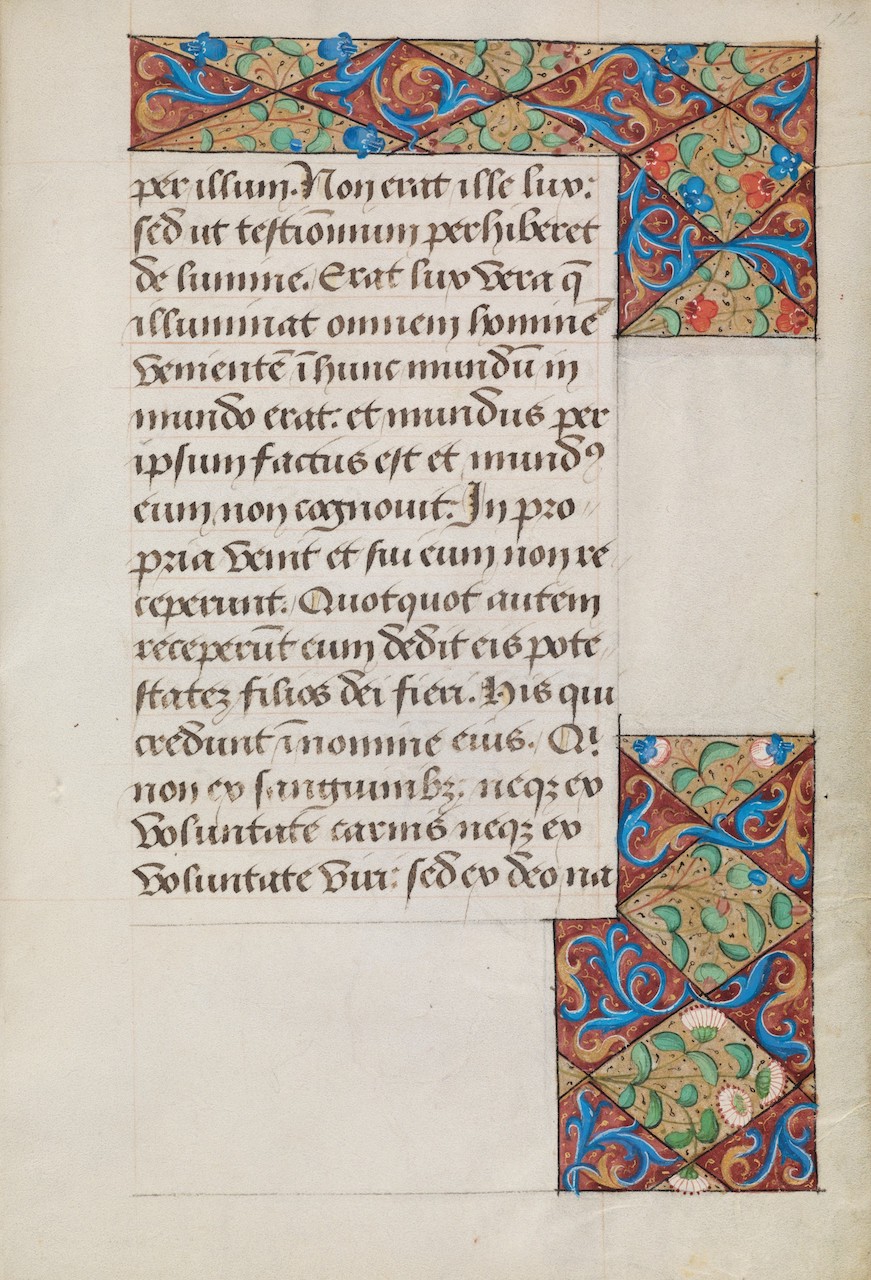 per illum. Non erat ille lux:
sed ut testimoniūm perhiberet
de lumine. Erat lux vera q̄
illuminat omnem hominē
venientē ī hunc mundū in
mundo erat: et mundus per
ipsum factus est et mundꝰ
eum non cognouit: In pro
pria venit et sui eum non re
ceperunt. Quotquot autem
receperūt eum dedit eis pote
statez filios dei fieri. His qui
credunt ī nomine eius. Qi
non ex sanguinibz: neqz ex
voluntate carnis neqz ex
voluntate viri: sed ex deo na